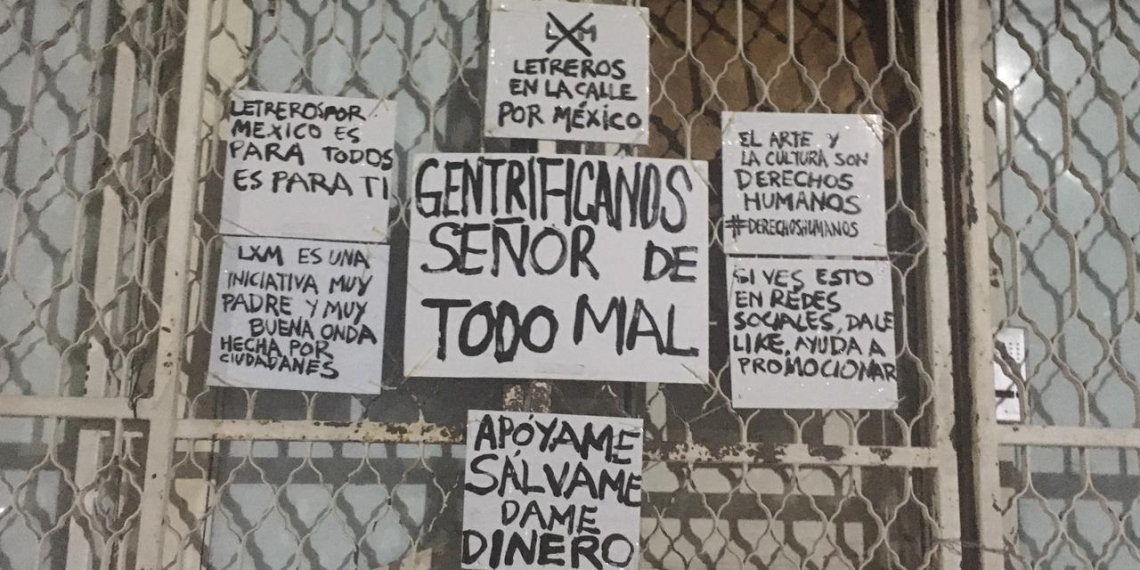 LXM
LETREROS
EN LA CALLE
POR MÉXICO
LETREROS POR
MEXICO ES
PARA TODOS
ES PARA TI
LXM ES UNA
INICIATIVA MUY
PADRE Y MUY
BUENA ONDA
HECHA POR
CIUDADANES
GENTRIFICANOS
SEÑOR DE
TODO MAL
EL ARTE Y
LA CULTURA SON
DERECHOS
HUMANOS
#DERECHOSHUMANOS
SI VES ESTO
EN REDES
SOCIALES, DALE
LIKE, AYUDA A
PROMOCIONAR
APÓYAME
SÁLVAME
DAME
DINERO